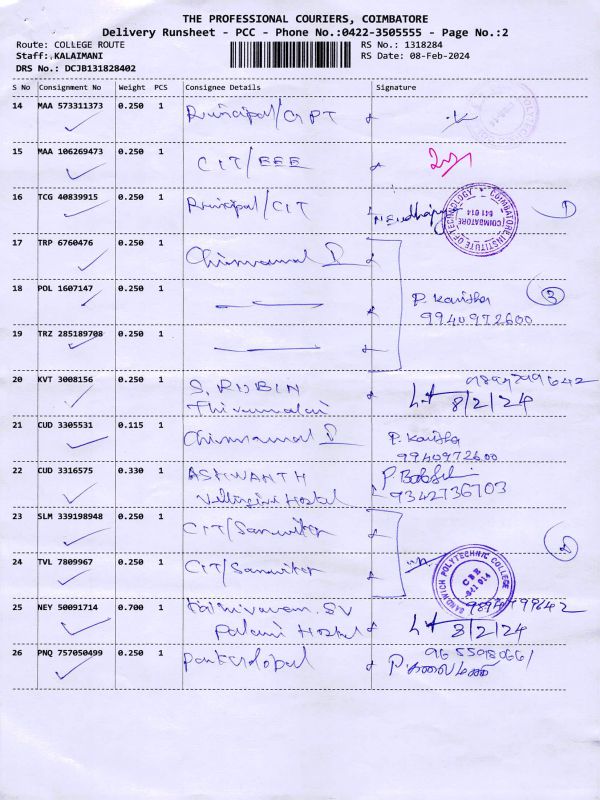 THE PROFESSIONAL COURIERS, COIMBATORE
Delivery Runsheet - PCC - Phone No.:0422-3505555 - Page No.:2
Route: COLLEGE ROUTE RS No.: 1318284
Staff: KALAIMANI RS Date: 08-Feb-2024
DRS No.: DCJB131828402
S No Consignment No Weight PCS Consignee Details Signature
14 MAA 573311373 0.250 1 Principal/GPT
15 MAA 106269473 0.250 1 CIT/EEE
16 TCG 40839915 0.250 1 Principal/CIT
COIMBATORE INSTITUTE OF TECHNOLOGY
COIMBATORE
641 014
1
17 TRP 6760476 0.250 1
18 POL 1607147 0.250 1 P. Kavitha 3
9940972600
19 TRZ 285189708 0.250 1
20 KVT 3008156 0.250 1 S. RUBIN
Thirumalai 8/2/24
21 CUD 3305531 0.115 1 P. Kavitha
9940972600
22 CUD 3316575 0.330 1 ASHWANTH
Hostel 9342736703
23 SLM 339198948 0.250 1 CIT/Sandwich
2
24 TVL 7809967 0.250 1 CIT/Sandwich
SANDWICH POLYTECHNIC COLLEGE
CBE
641 014
25 NEY 50091714 0.700 1 SV
Palani Hostel 8/2/24
26 PNQ 757050499 0.250 1